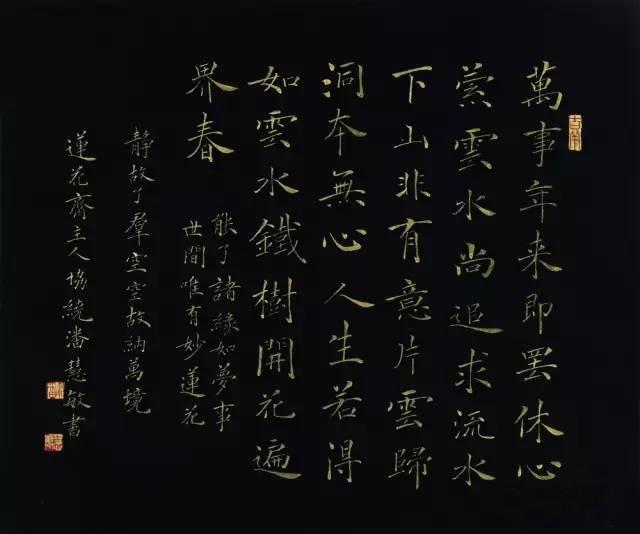 萬事年来即罷休心
萦雲水尚追求流水
下山非有意片雲歸
洞本無心人生若得
如雲水鐵樹開花遍
界春
能了諸緣如夢事
世間唯有妙蓮花
静故了羣空空故納萬境
蓮花齋主人協潘慧敏書